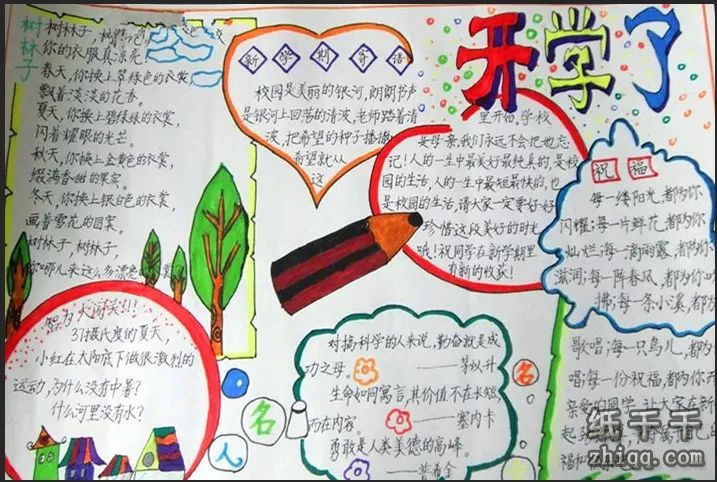 开学了
树林子
树林子，树林子，
你的衣服真漂亮！
春天，你换上翠绿色的衣裳，
飘着淡淡的花香。
夏天，你换上碧绿绿的衣裳，
闪着耀眼的光芒。
秋天，你换上金黄色的衣裳，
缀满香甜的果实。
冬天，你换上银白色的衣裳，
画着雪花的图案。
树林子，树林子，
你哪儿来这么多漂亮
新学期寄语
校园是美丽的银河，朗朗书声
是银河上回荡的清波，老师踏着清
波，把希望的种子播撒
希望就从
这
里开始，学校
是母亲，我们永远不会把她忘
记！人的一生中最美好最纯真的，是校
园的生活，人的一生中最短最快的，也
是校园的生活，请大家一定要好好
珍惜这段美好的时光
哦！祝同学在新学期里
有新的收获！
祝福
每一缕阳光，都为你
闪耀；每一片鲜花，都为你
灿烂；每一滴雨露，都为你
滋润；每一阵春风，都为你
拂；每一条小溪，都为
歌唱；每一只鸟儿，都为
唱；每一份祝福，都为你
亲爱的同学，让大家在新
起
福和
智力火涛关！！！
37摄氏度的夏天，
小红在太阳底下做很激烈的
运动，为什么没有中暑？
什么河里没有水？
名人名言
对搞科学的人来说，勤奋就是成
功之母。
——茅以升
生命如同寓言，其价值不在长短，
而在内容。
——塞内卡
勇敢是人类美德的高峰。
——普希金
纸千千
zhiqq.com